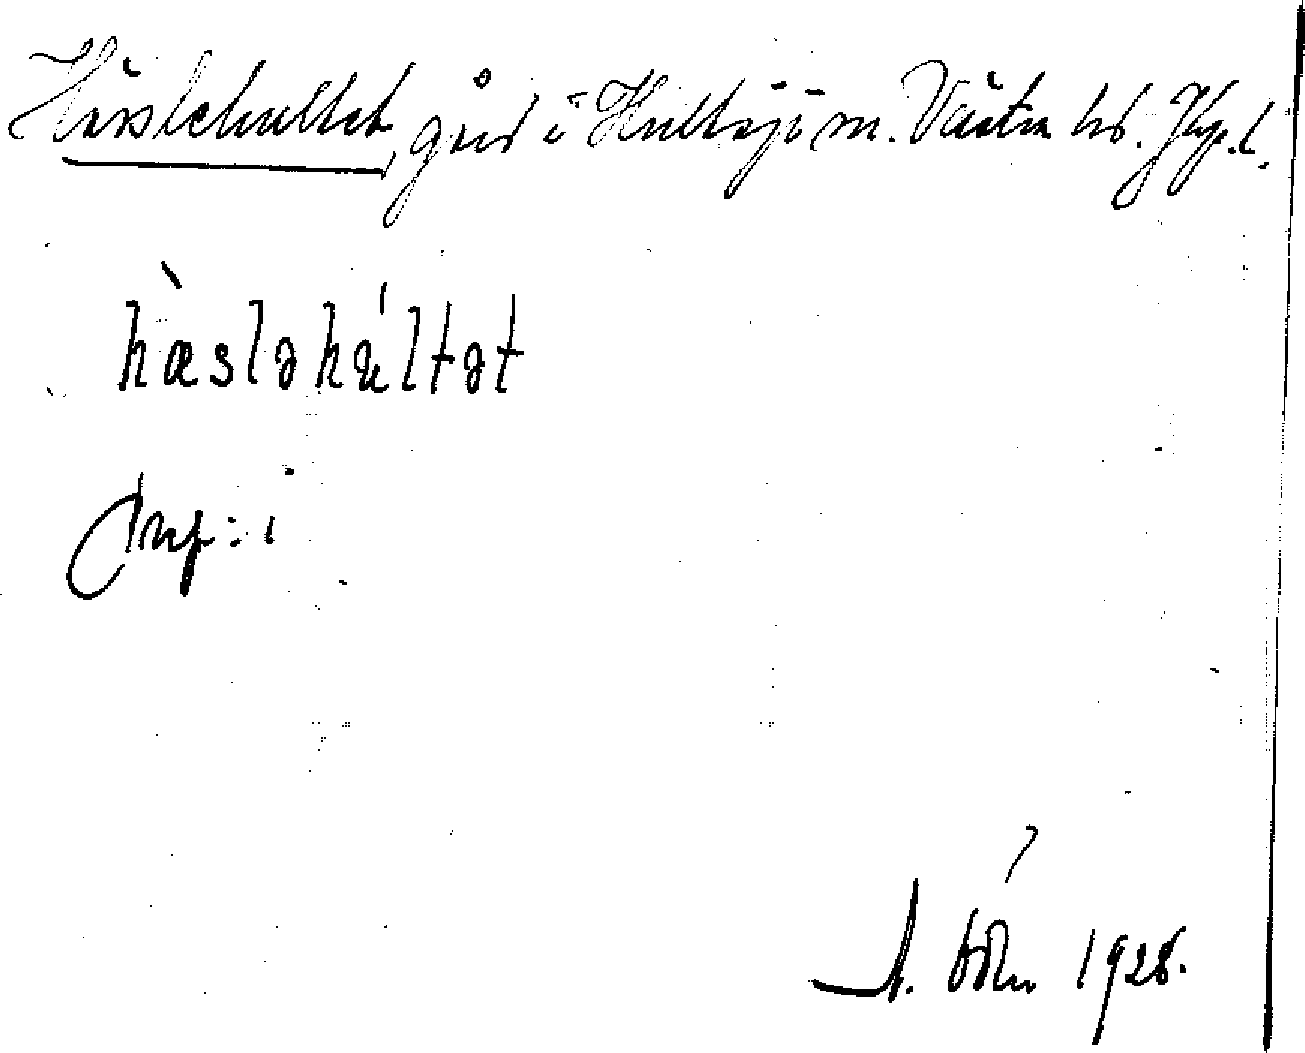 Hässlehultet, gård i Hultsjö sn. Västra hd. Jkp. l.
hæsləhultət
prep: i
1928.